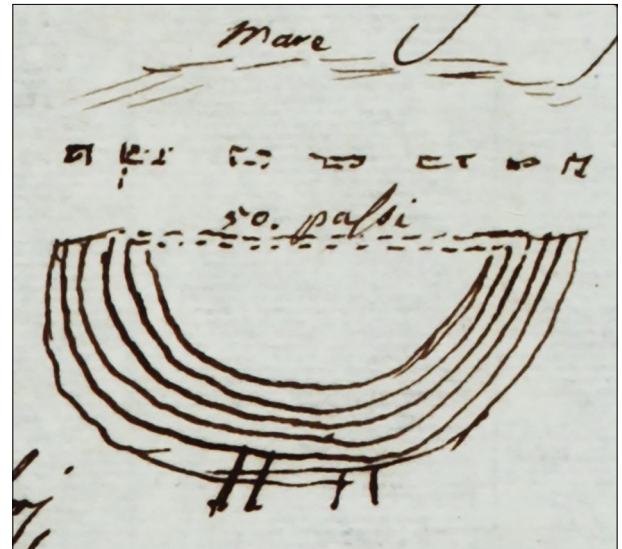 Mare
50. passi